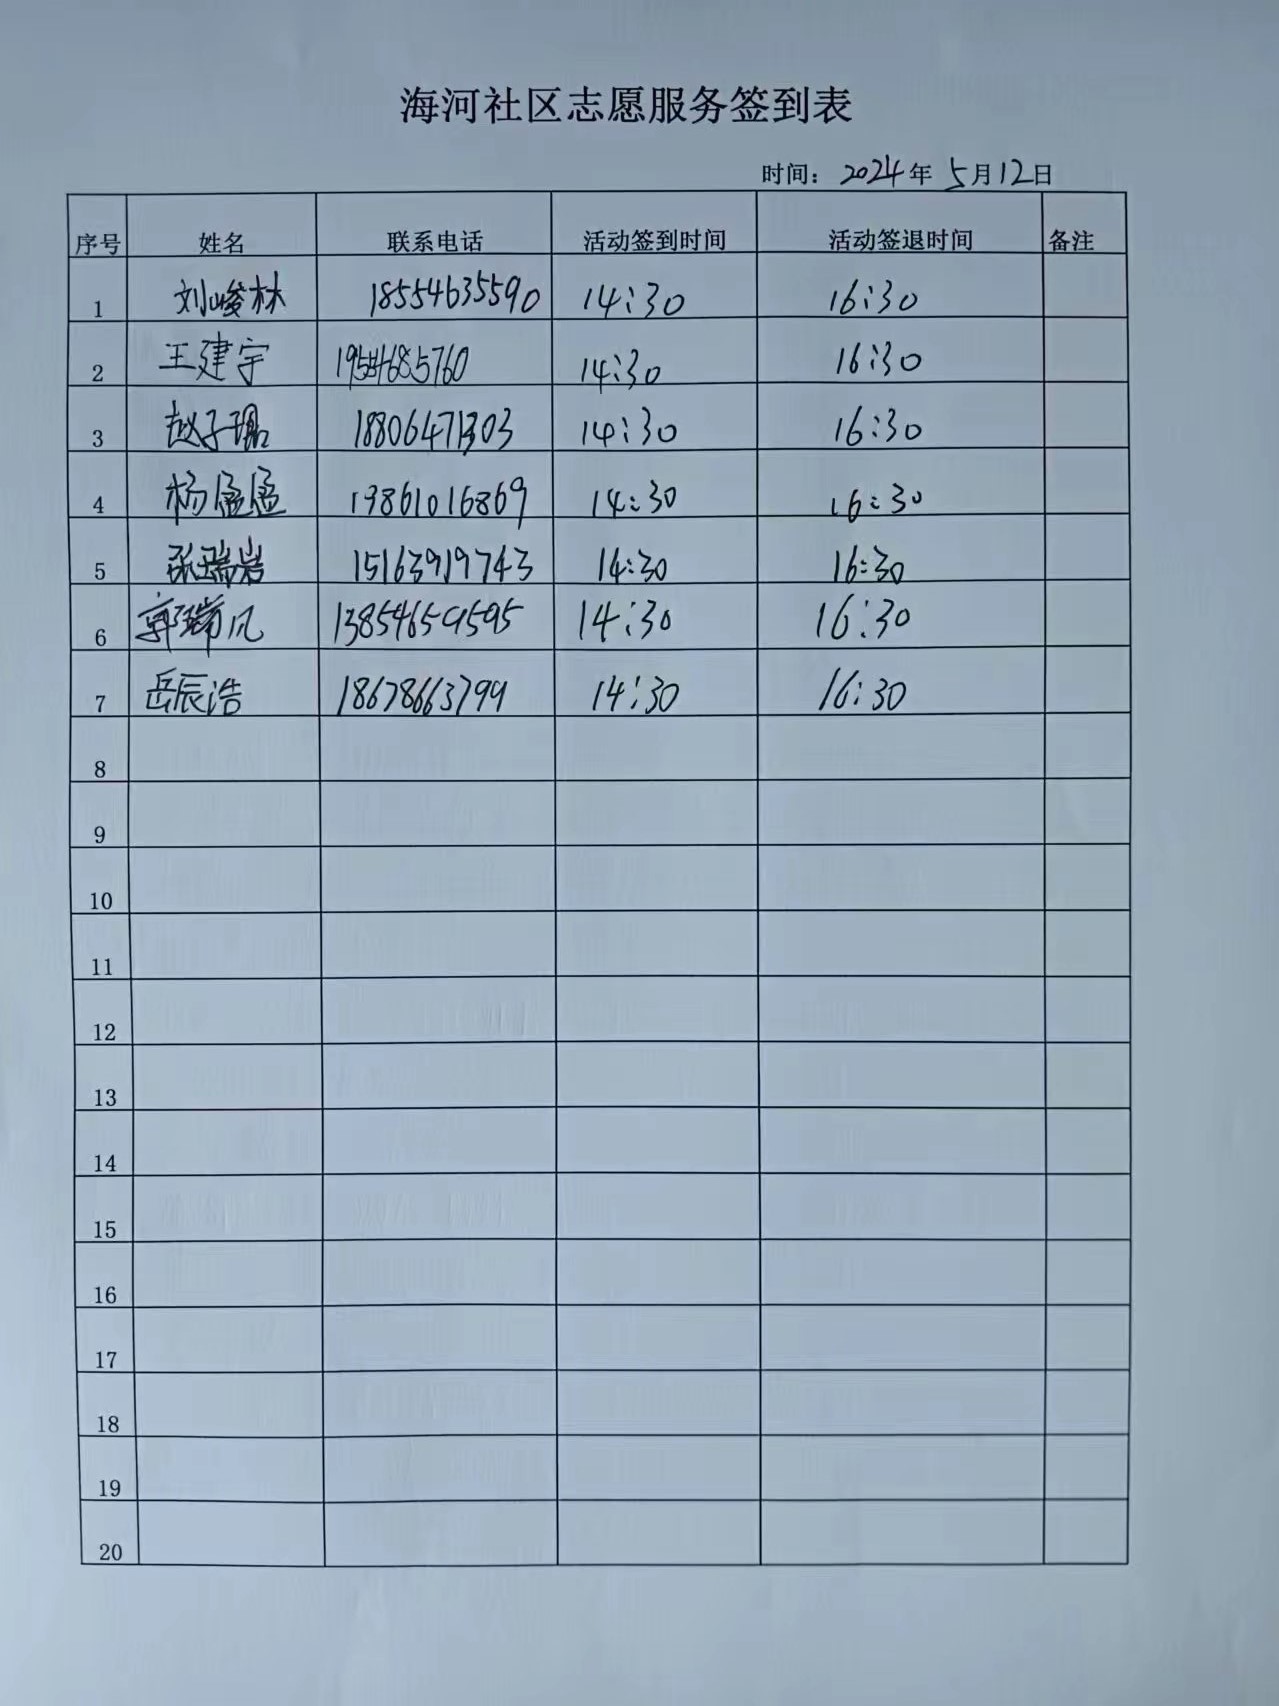 海河社区志愿服务签到表
时间：2024年5月12日
序号 姓名 联系电话 活动签到时间 活动签退时间 备注
1 刘峻林 18554635590 14:30 16:30
2 王建宇 14:30 16:30
3 赵子琨 18806471303 14:30 16:30
4 杨孟孟 19861016869 14:30 16:30
5 张瑞岩 15163919743 14:30 16:30
6 郭瑞凡 13854659595 14:30 16:30
7 岳辰浩 18678663799 14:30 16:30
8
9
10
11
12
13
14
15
16
17
18
19
20